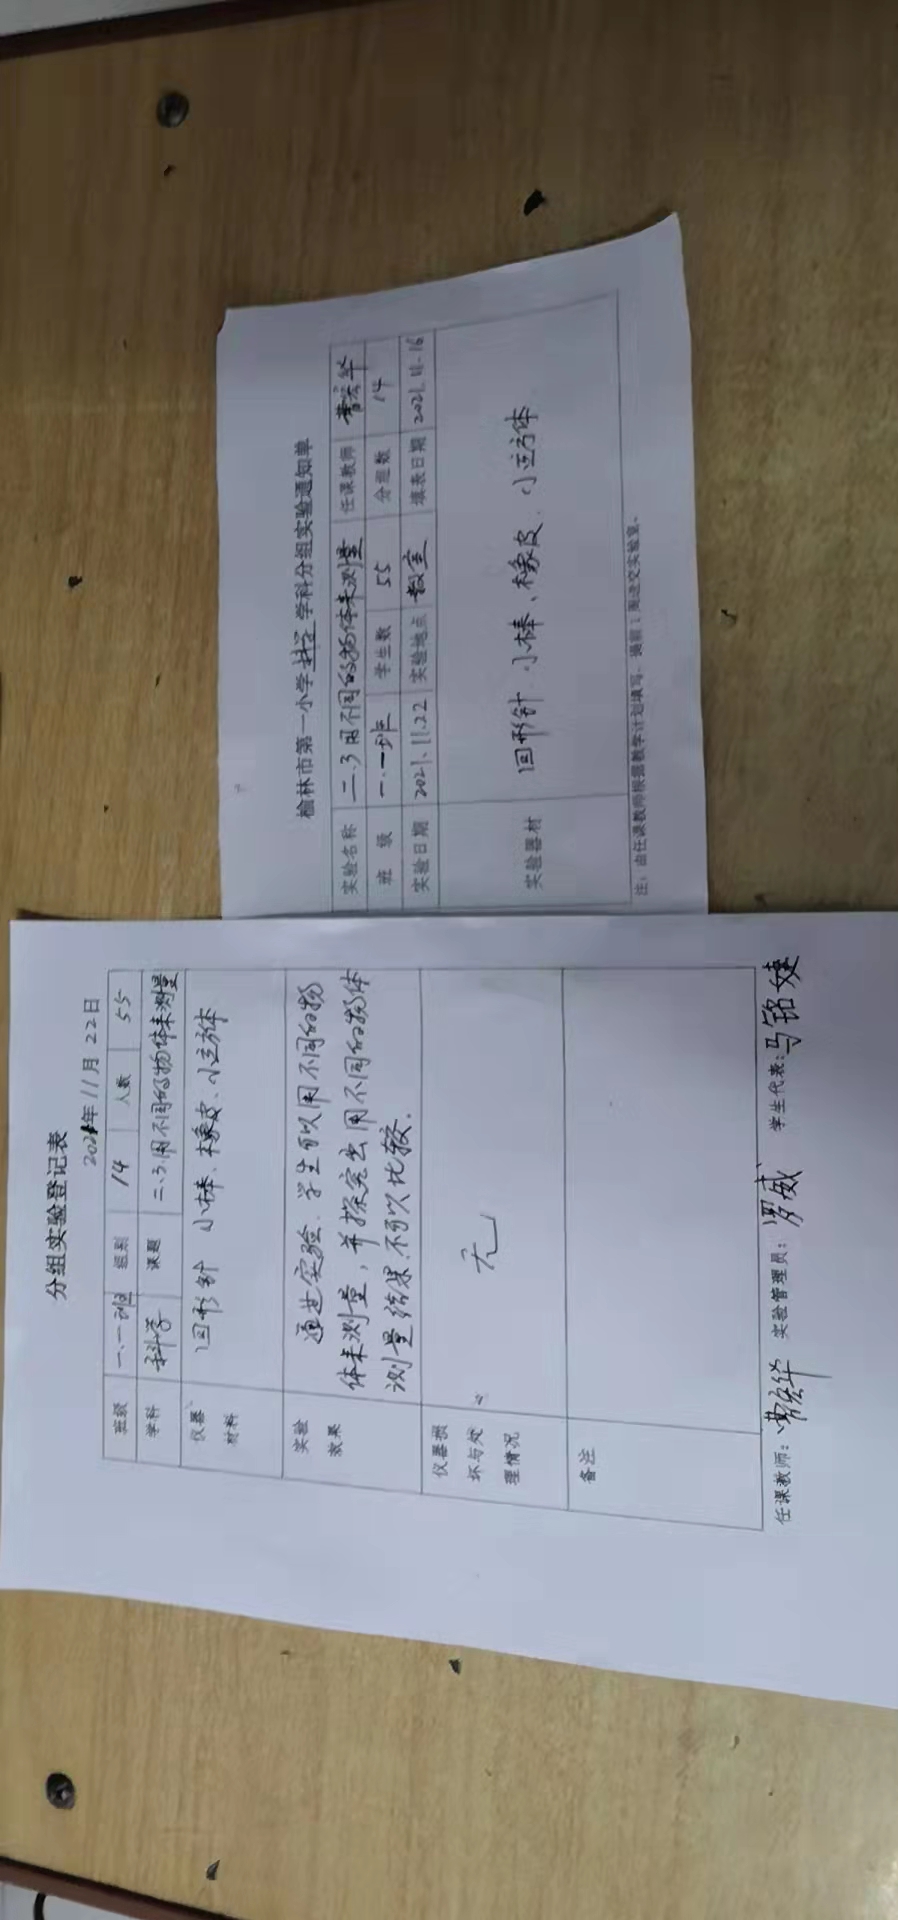 分组实验登记表
2021年11月22日
班级 一.一班 组别 14 人数 55
学科 科学 课题 二.3.用不同的物体来测量
仪器材料 回形针 小棒、橡皮、小立方体
实验效果 通过实验.学生可以用不同的物
体来测量，并探究出用不同的物体
测量结果.不可以比较.
仪器损坏与处理情况 无
备注
任课教师： 实验管理员：罗威 学生代表：马铭婕
榆林市第一小学科学学科分组实验通知单
实验名称 二.3用不同的物体来测量 任课教师
班级 一.一班 学生数 55 分组数 14
实验日期 2021.11.22 实验地点 教室 填表日期 2021.11.16
实验器材 回形针 小棒、橡皮、小立方体
注：由任课教师根据教学计划填写，提前1周送交实验室。